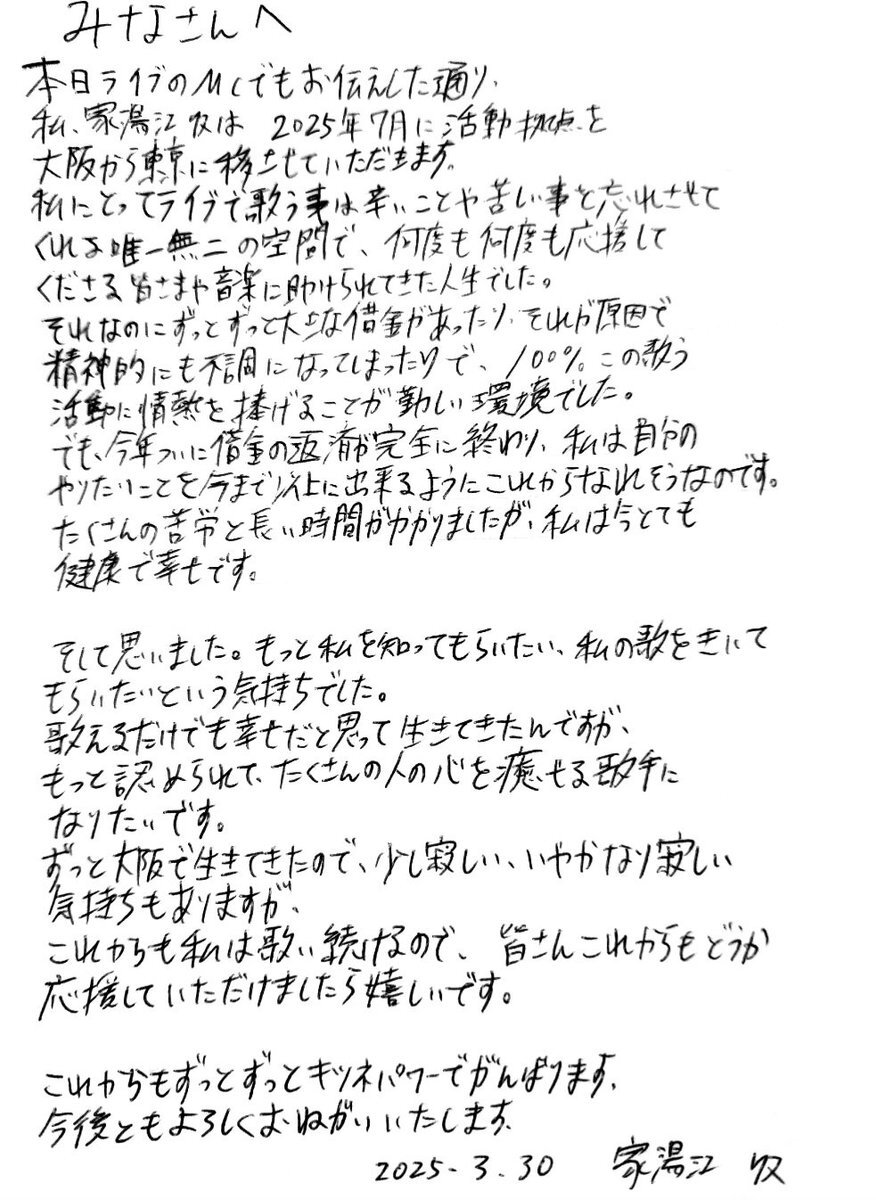 みなさんへ
本日ライブのMCでもお伝えした通り、
私、家湯江 収は 2025年7月に活動拠点を
大阪から東京に移させていただきます。
私にとってライブで歌う事は辛いことや苦しい事を忘れさせて
くれる唯一無二の空間で、何度も何度も応援して
くださる皆さまや音楽に助けられてきた人生でした。
それなのにずっとずっと大きな借金があったり、それが原因で
精神的にも不調になってしまったりで、100%この歌う
活動に情熱を捧げることが難しい環境でした。
でも、今年ついに借金の返済が完全に終わり、私は自分の
やりたいことを今まで以上に出来るようにこれからなれそうなのです。
たくさんの苦労と長い時間がかかりましたが、私は今とても
健康で幸せです。
そして思いました。もっと私を知ってもらいたい、私の歌をきいて
もらいたいという気持ちでした。
歌えるだけでも幸せだと思って生きてきたんですが、
もっと認められて、たくさんの人の心を癒せる歌手に
なりたいです。
ずっと大阪で生きてきたので、少し寂しい、いやかなり寂しい
気持ちもありますが、
これからも私は歌い続けるので、皆さんこれからもどうか
応援していただけましたら嬉しいです。
これからもずっとずっとキツネパワーでがんばります。
今後ともよろしくおねがいいたします。
2025.3.30 家湯江 収